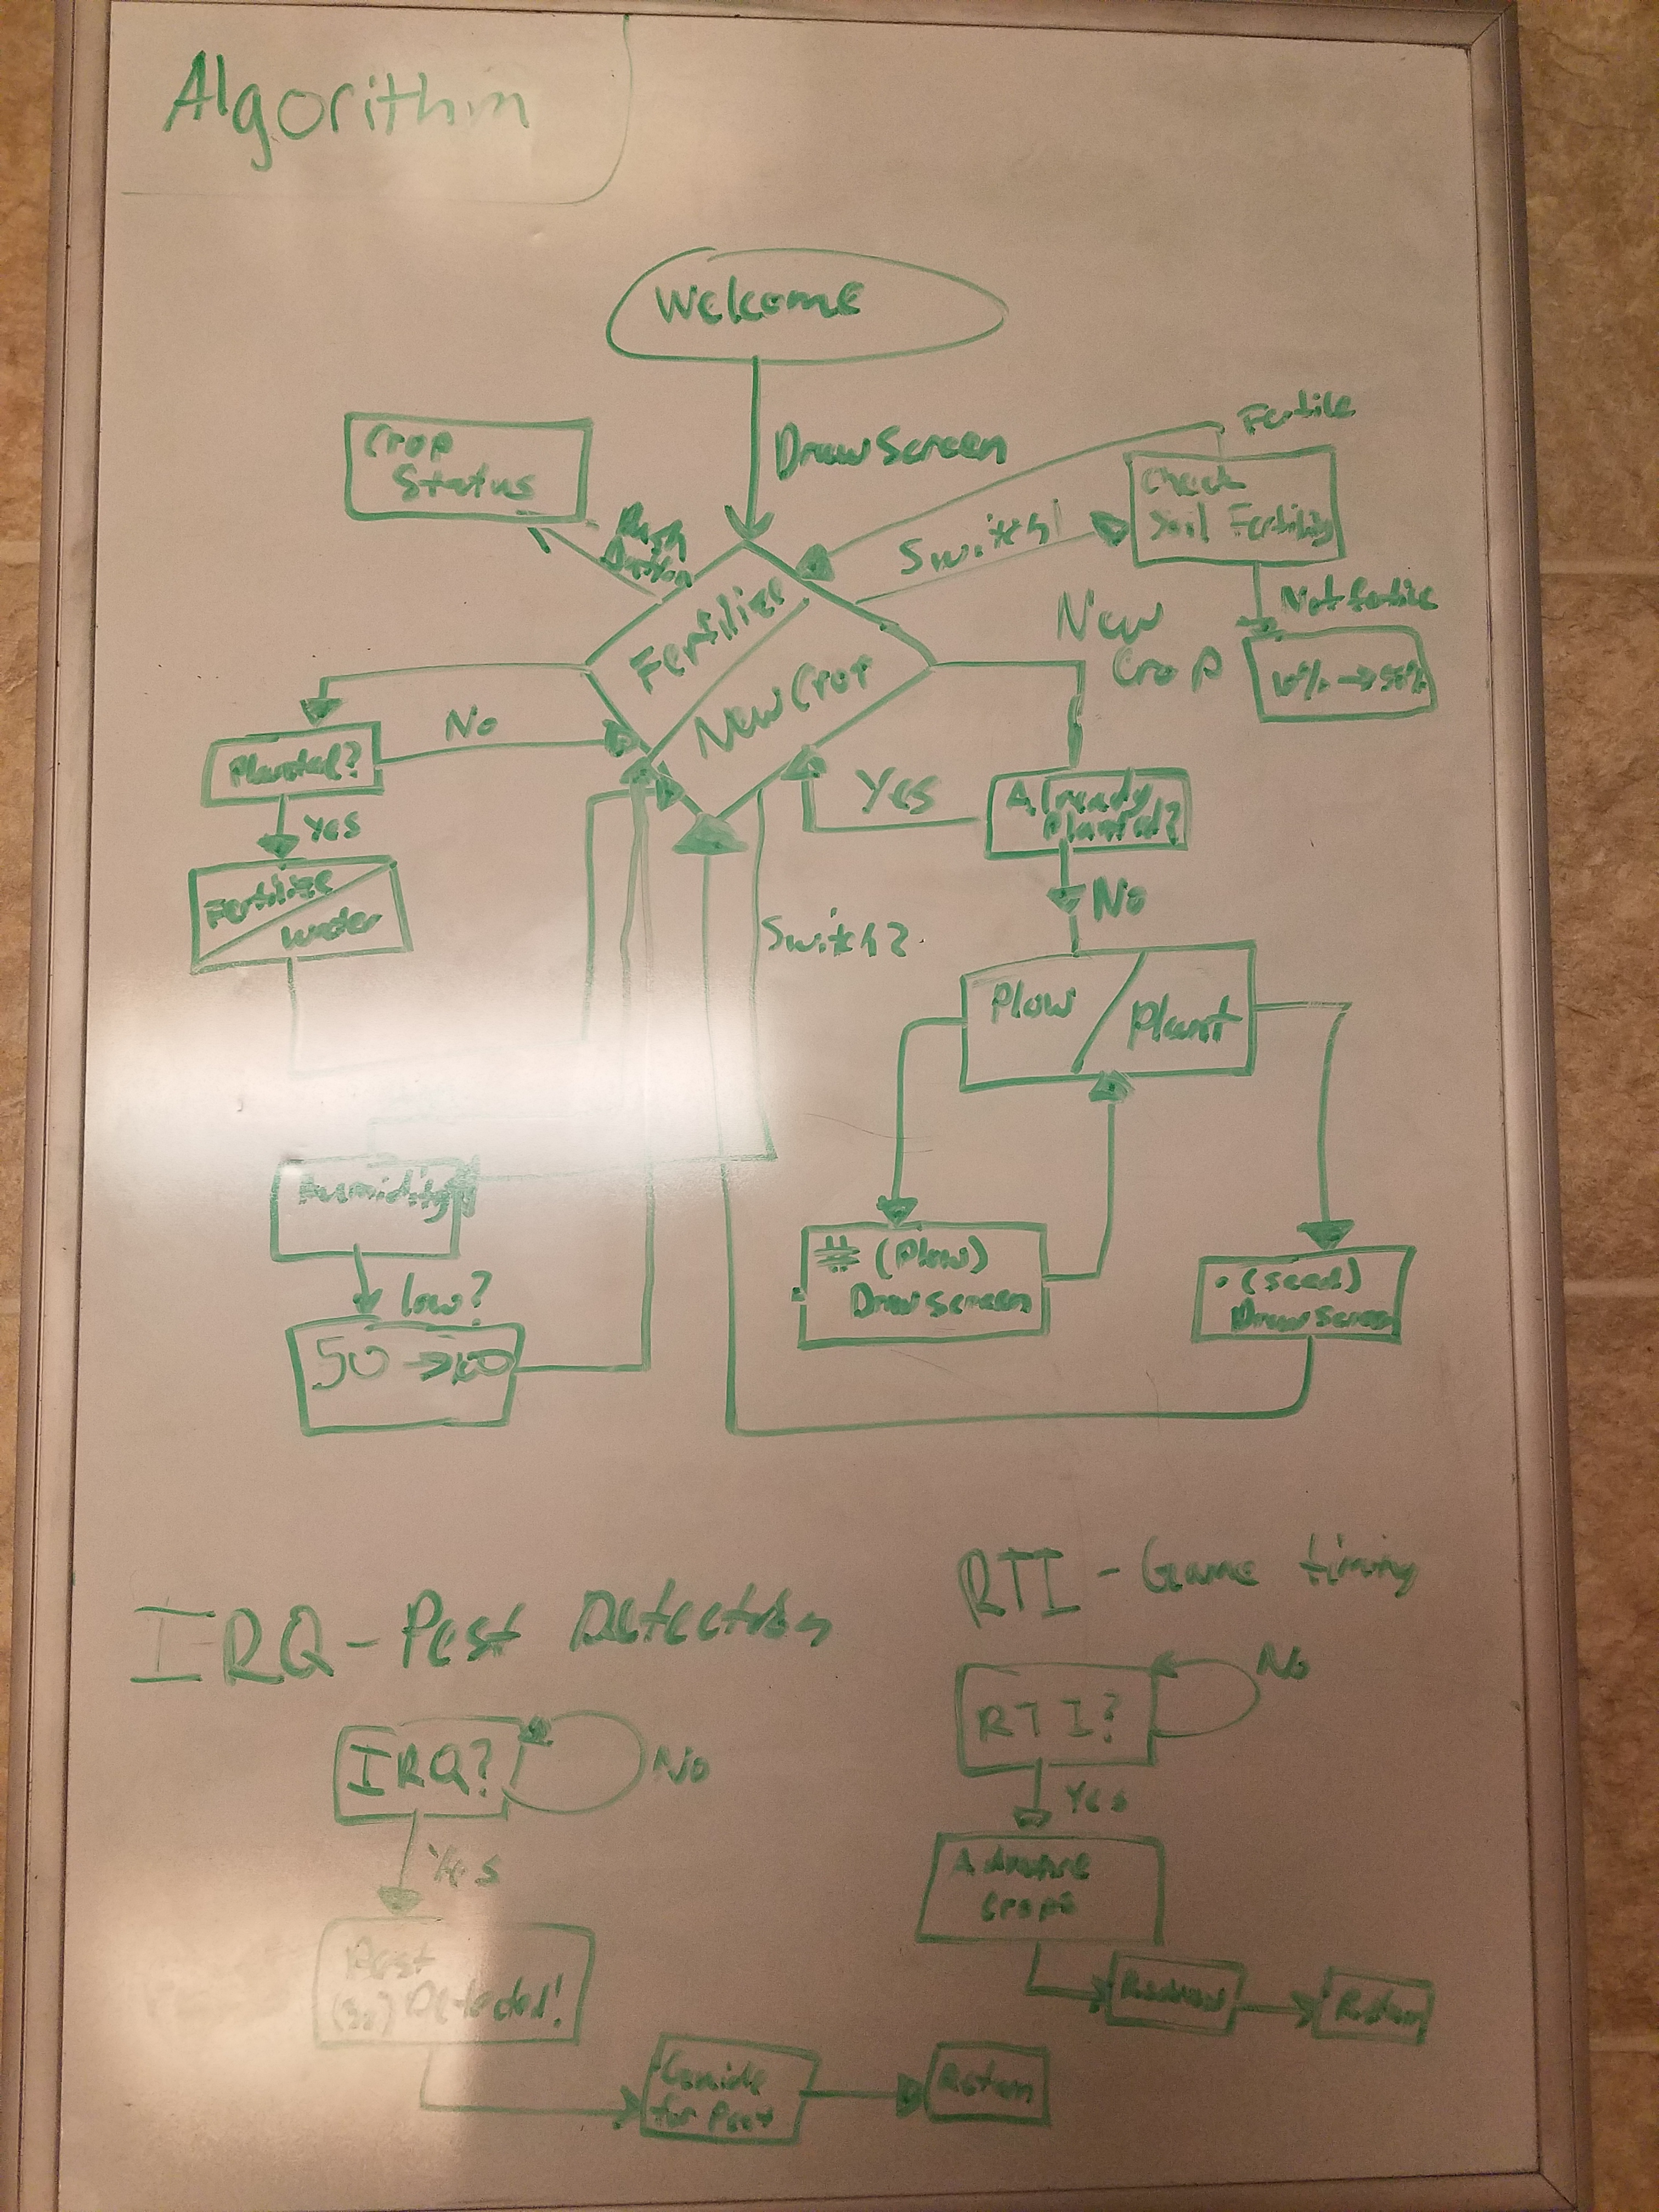 Algorithm
Welcome
Draw Screen
Crop
Status
Push
Button
Fertile
Check
Soil Fertility
Switch 1
Not fertile
10% → 50%
Fertilize
New Crop
New
Crop
Planted?
No
Yes
Fertilize
Water
Already
Planted?
Yes
No
Switch 2
Plow / Plant
Humidity
low?
50 → 100
# (Plow)
Draw screen
• (seed)
Draw Screen
IRQ - Pest Detection
IRQ?
No
Yes
Pest
Detected!
for Pest
Return
RTI - Game timing
RTI?
No
Yes
Advance
Crops
Redraw
Return